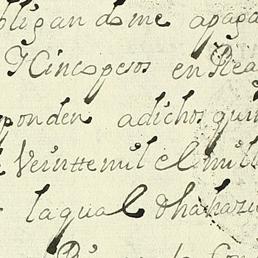 obligandome apaga
YCincopesos en Rea
sponden adichos quin
Veinttemil el mill
laqual dha hazi